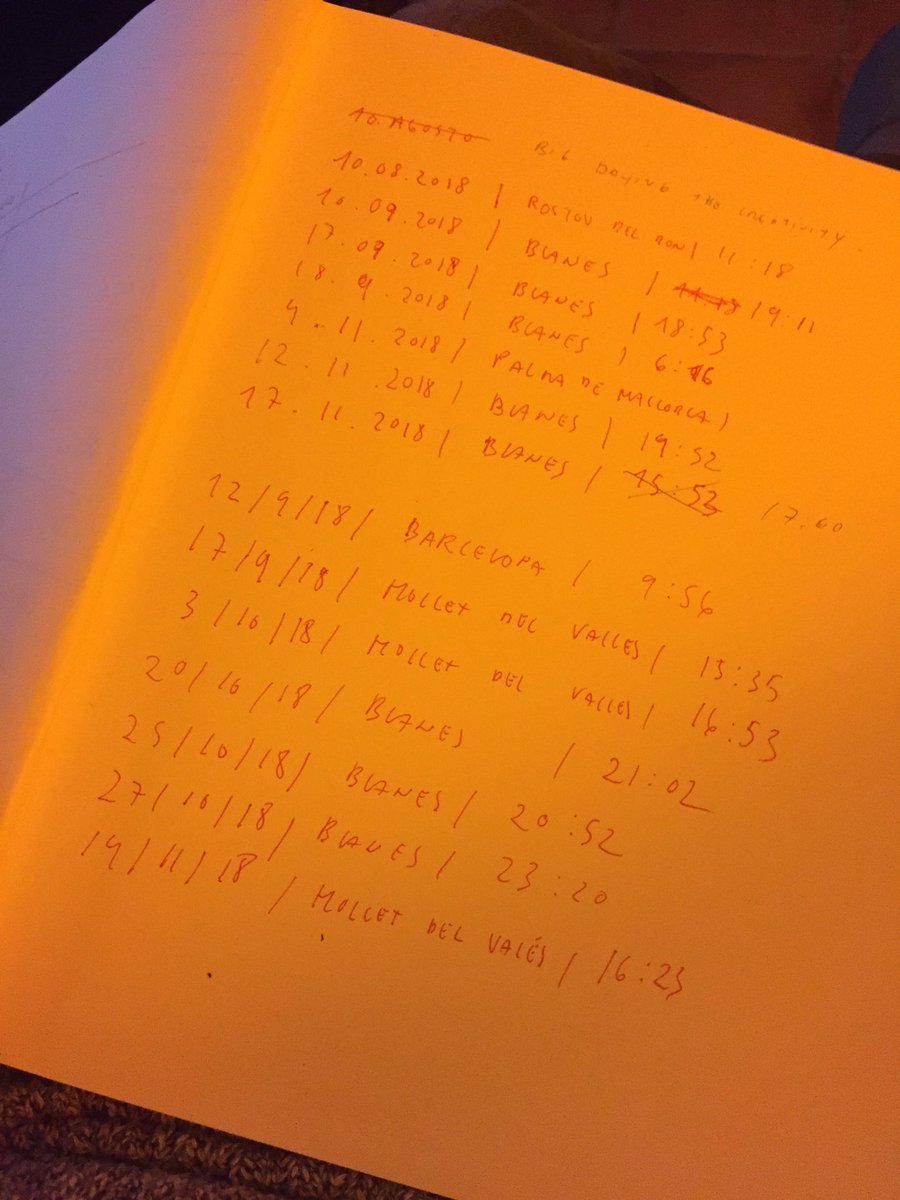 10. AGOSTO BIG DOYING THE CREATIVITY
10.08.2018 | ROSTOV DEL DON | 11:18
10.09.2018 | BLANES | 11:18 19:11
17.09.2018 | BLANES | 18:53
18.9.2018 | BLANES | 6:16
4.11.2018 | PALMA DE MALLORCA |
12.11.2018 | BLANES | 19:52
17.11.2018 | BLANES | 15:52 17.00
12/9/18 | BARCELONA | 9:56
17/9/18 | MOLLET DEL VALLES | 15:35
3/10/18 | MOLLET DEL VALLES | 16:53
20/10/18 | BLANES | 21:02
25/10/18 | BLANES | 20:52
27/10/18 | BLANES | 23:20
14/11/18 | MOLLET DEL VALÉS | 16:23